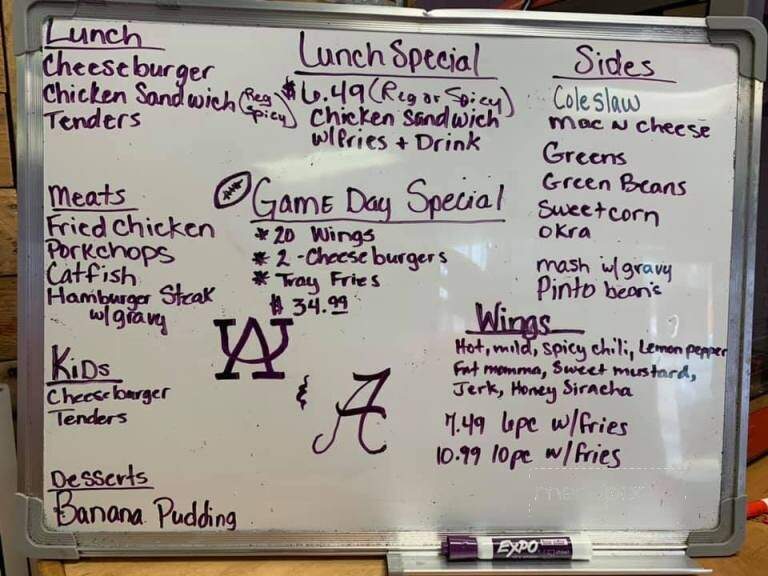 Lunch
Cheeseburger
Chicken Sandwich (Reg Spicy)
Tenders
Lunch Special
$6.49 (Reg or Spicy)
Chicken Sandwich
w/Fries + Drink
Sides
Coleslaw
mac N cheese
Greens
Green Beans
Sweetcorn
okra
mash w/gravy
Pinto beans
Meats
Fried Chicken
Porkchops
Catfish
Hamburger Steak
w/gravy
Game Day Special
* 20 Wings
* 2 - Cheeseburgers
* Tray Fries
$34.99
AU
&
A
Wings
Hot, mild, Spicy chili, Lemon pepper
Fat momma, Sweet mustard,
Jerk, Honey Siracha
7.49 6pc w/fries
10.99 10pc w/fries
Kids
Cheeseburger
Tenders
Desserts
Banana Pudding
EXPO